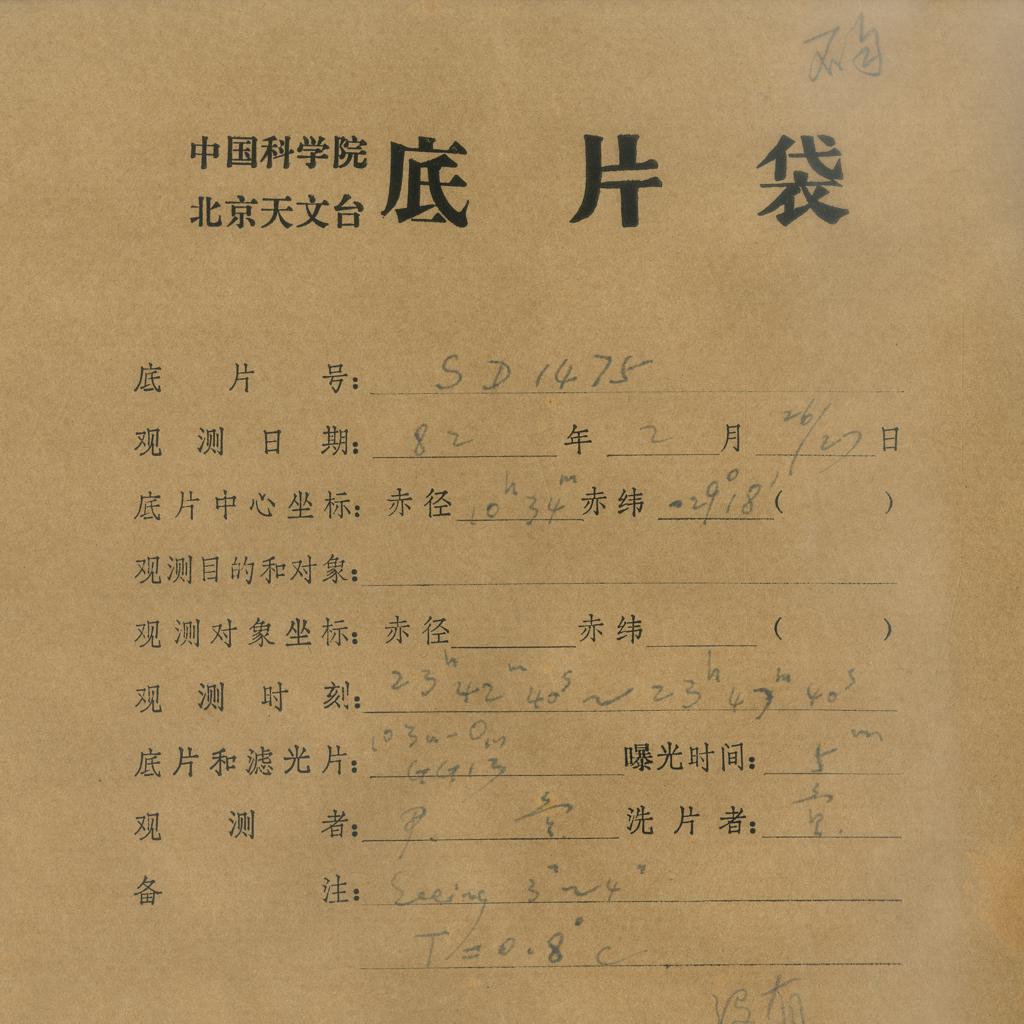 确
中国科学院
北京天文台
底片袋
底片号：SD1475
观测日期：82年2月26/27日
底片中心坐标：赤径10h34m赤纬-29°18′(　　)
观测目的和对象：
观测对象坐标：赤径　　赤纬　　(　　)
观测时刻：23h42m40s～23h47m40s
底片和滤光片：103a-O
GG13
曝光时间：5m
观测者：尹
洗片者：
备注：Seeing 3″～4″
T=0.8°C
没有